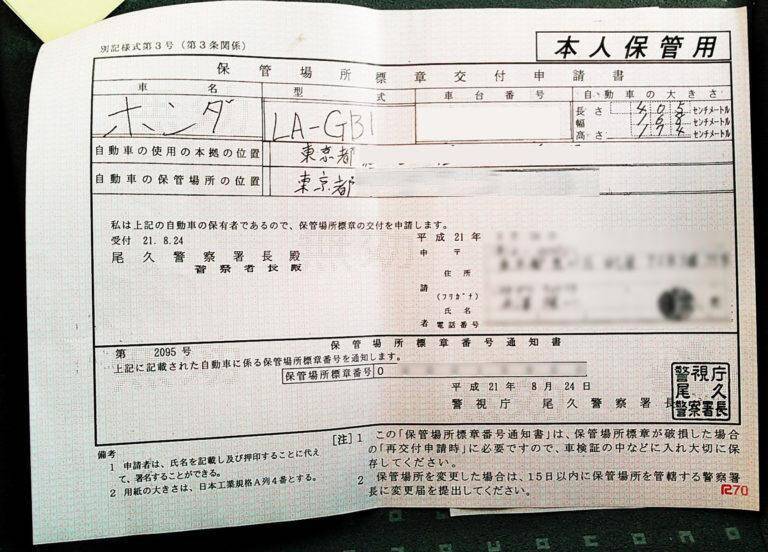 別記様式第3号(第3条関係)
本人保管用
保管場所標章交付申請書
車名 型式 車台番号 自動車の大きさ
ホンダ LA-GB1
長さ 405 センチメートル
幅 168 センチメートル
高さ 174 センチメートル
自動車の使用の本拠の位置 東京都
自動車の保管場所の位置 東京都
私は上記の自動車の保有者であるので、保管場所標章の交付を申請します。
受付 21.8.24 平成21年
尾久警察署長殿
警察署長殿
申請者
〒
住所
(フリガナ)
氏名
電話番号
保管場所標章番号通知書
第 2095 号
上記に記載された自動車に係る保管場所標章番号を通知します。
保管場所標章番号 0
平成21年8月24日
警視庁 尾久警察署長
警視庁
尾久
警察署長
備考
1 申請者は、氏名を記載し及び押印することに代え
て、署名することができる。
2 用紙の大きさは、日本工業規格A列4番とする。
[注] 1 この「保管場所標章番号通知書」は、保管場所標章が破損した場合
の「再交付申請時」に必要ですので、車検証の中などに入れ大切に保
存してください。
2 保管場所を変更した場合は、15日以内に保管場所を管轄する警察署
長に変更届を提出してください。
R70